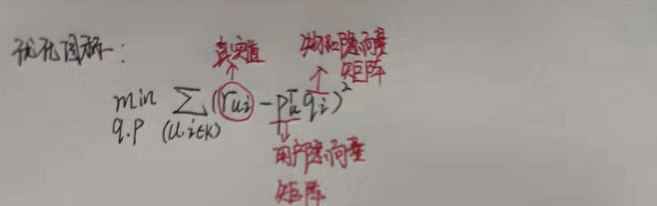 优化目标:
真实值
物品隐向量
矩阵
min Σ (r_ui - p_u^T q_i)^2
q.p (u.i∈K)
用户隐向量
矩阵